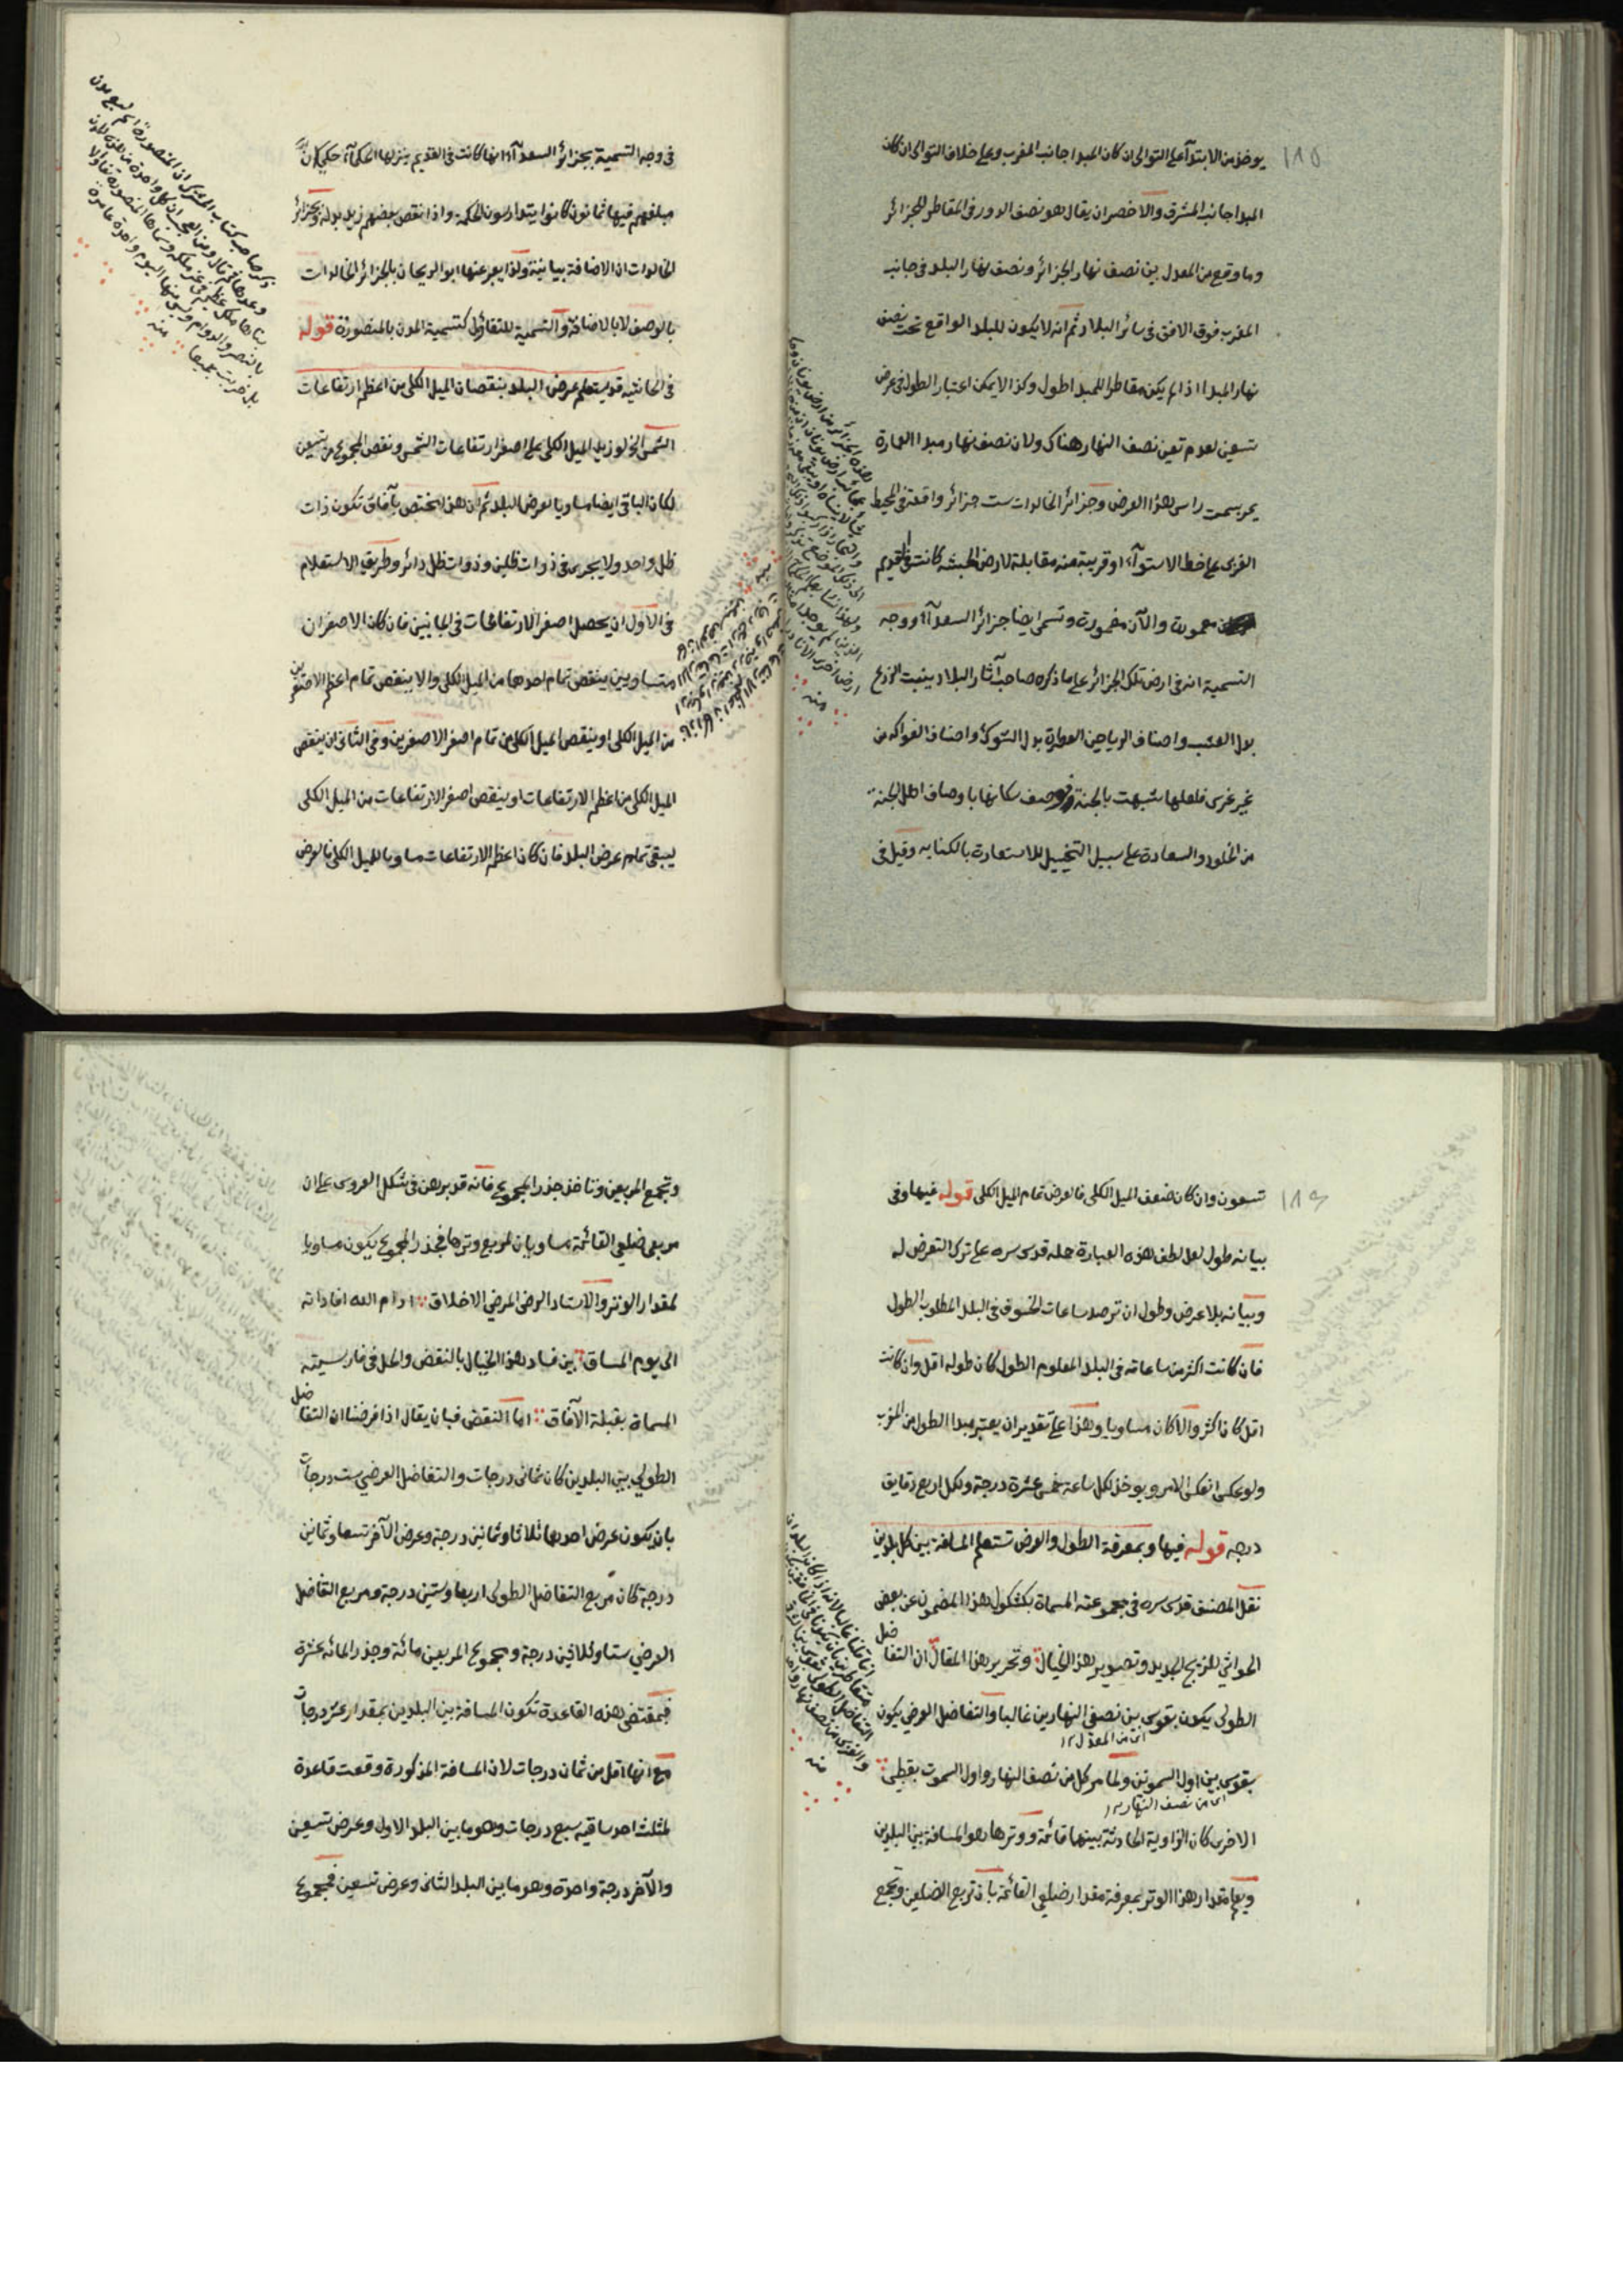 ١٨٥
يوخذ من الابتدآء على التوالى ان كان المبدا جانب المغرب وعلى خلاف التوالى ان كان
المبدا جانب المشرق والاخصر ان يقال هو نصف الدور فى المقاطر للجزائر
وما وقع من المعدل بين نصف نهار الجزائر ونصف نهار البلد فى جانب
المغرب فوق الافق فى سائر البلاد ثم انه لا يكون للبلد الواقع تحت نصف
نهار المبدا اذا لم يكن مقاطرا للمبدا طول وكذا لا يمكن اعتبار الطول فى عرض
تسعين لعدم تعين نصف النهار هناك ولان نصف نهار مبدا العمارة
يمر بسمت راس هذا العرض وجزائر الخالدات ست جزائر واقعة فى المحيط
الغربى على خط الاستوآء او قريبة منه مقابلة لارض الحبشه كانت فى القديم
معمورة والآن مغمورة وتسمى ايضا جزائر السعدآء ووجه
التسمية انه فى ارض تلك الجزائر على ما ذكره صاحب آثار البلاد ينبت الزرع
بدل العشب واصناف الرياحين العطرة بدل الشوك واصناف الفواكه من
غير غرس فلعلها شبهت بالجنة ووصف سكانها باوصاف اهل الجنة
من الخلود والسعادة على سبيل التخييل للاستعارة بالكنايه وقيل فى
فى وجه التسمية بجزائر السعدآء انها كانت فى القديم ينزلها الحكمآء حكى ان
مبلغهم فيها ثمانون كانوا يتدارسون الحكمة واذا نقص بعضهم زيد بدله وجزائر
الخالدات ان الاضافة بيانية ولذا يعبر عنها ابو الريحان بالجزائر الخالدات
بالوصف لا بالاضافة والتسمية للتفاؤل كتسمية المدن بالمنصورة قوله
فى الحاشيه قد يستعلم عرض البلد بنقصان الميل الكلى من اعظم ارتفاعات
الشمس الخ لو زيد الميل الكلى على اصغر ارتفاعات الشمس ونقص المجموع من تسعين
لكان الباقى ايضا مساويا لعرض البلد ثم ان هذا مختص بآفاق تكون ذات
ظل واحد ولا يجرى فى ذوات ظلين وذوات ظل دائر وطريق الاستعلام
فى الاول ان يحصل اصغر الارتفاعات فى الجانبين فان كان الاصغران
متساويين ينقص تمام احدهما من الميل الكلى والا ينقص تمام اعظم الاصغرين
من الميل الكلى او ينقص الميل الكلى من تمام اصغر الاصغرين وفى الثانى ان ينقص
الميل الكلى من اعظم الارتفاعات او ينقص اصغر الارتفاعات من الميل الكلى
ليبقى تمام عرض البلد فان كان اعظم الارتفاعات مساويا للميل الكلى فالعرض
ذكر صاحب كتاب المشترك ان المنصورة اسم لسبع مدن
وعدها ثم قال ومن العجب ان كل واحدة من
بناها ملك عظيم فى عز ملكه وسماها المنصورة تفاؤلا
بالنصر والدوام وليس منها اليوم واحدة عامرة
بل خربت جميعا منه
١٨٦
تسعون وان كان ضعف الميل الكلى فالعرض تمام الميل الكلى قوله فيها وفى
بيانه طول لعل لطف هذه العبارة حمله قدس سره على ترك التعرض له
وبيانه بلا عرض وطول ان ترصد ساعات الخسوف فى البلد المطلوب الطول
فان كانت اكثر من ساعاته فى البلد المعلوم الطول كان طوله اقل وان كانت
اقل كان اكثر والا كان مساويا وهذا على تقدير ان يعتبر مبدا الطول من المغرب
ولو عكس انعكس الامر ويوخذ لكل ساعة خمس عشرة درجة ولكل اربع دقايق
درجه قوله فيها وبمعرفة الطول والعرض تستعلم المسافة بين كل بلدين
نقل المصنف قدس سره فى مجموعته المسماة بكشكول هذا المضمون عن بعض
الحواشى للزيج الجديد وتصوير هذا الخيال وتحرير هذا المقال ان التفاضل
الطولى يكون بقوس بين نصفى النهارين غالبا والتفاضل العرضى يكون
اى من المعدل ١٢
بقوس بين اول السموتين ولما مر كل من نصف النهار واول السموت بقطبى
اى من نصف النهار ١٢
الاخرى كان الزاوية الحادثة بينهما قائمة ووترها هو المسافة بين البلدين
ويعلم مقدار هذا الوتر بمعرفة مقدار ضلعى القائمة بان تربع الضلعين وتجمع
وتجمع المربعين وتاخذ جذر المجموع فانه قد برهن فى شكل العروس على ان
مربعى ضلعى القائمة مساويان لمربع وترها فجذر المجموع يكون مساويا
لمقدار الوتر والاستاد الرضى المرضى الاخلاق ادام الله افاداته
الى يوم المساق بين فساد هذا الخيال بالنقض والحل فى
المسماة بقبلة الآفاق اما النقض فبان يقال اذا فرضنا ان التفاضل
الطولى بين البلدين كان ثمانى درجات والتفاضل العرضى ست درجات
بان يكون عرض احدهما ثلاثا وثمانين درجة وعرض الآخر تسعا وثمانين
درجة كان مربع التفاضل الطولى اربعا وستين درجة ومربع التفاضل
العرضى ستا وثلاثين درجة ومجموع المربعين مائة وجذر المائه عشرة
فبمقتضى هذه القاعدة تكون المسافة بين البلدين بمقدار عشر درجات
مع انها اقل من ثمان درجات لان المسافة المذكورة وقعت قاعدة
لمثلث احد ساقيه سبع درجات وهو ما بين البلد الاول وعرض تسعين
والآخر درجة واحدة وهو ما بين البلد الثانى وعرض تسعين فمجموع